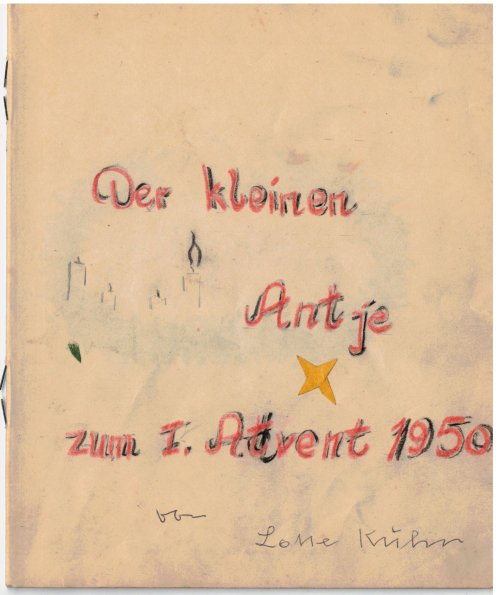 Der kleinen
Antje
zum I. Advent 1950
von
Lotte Kühn